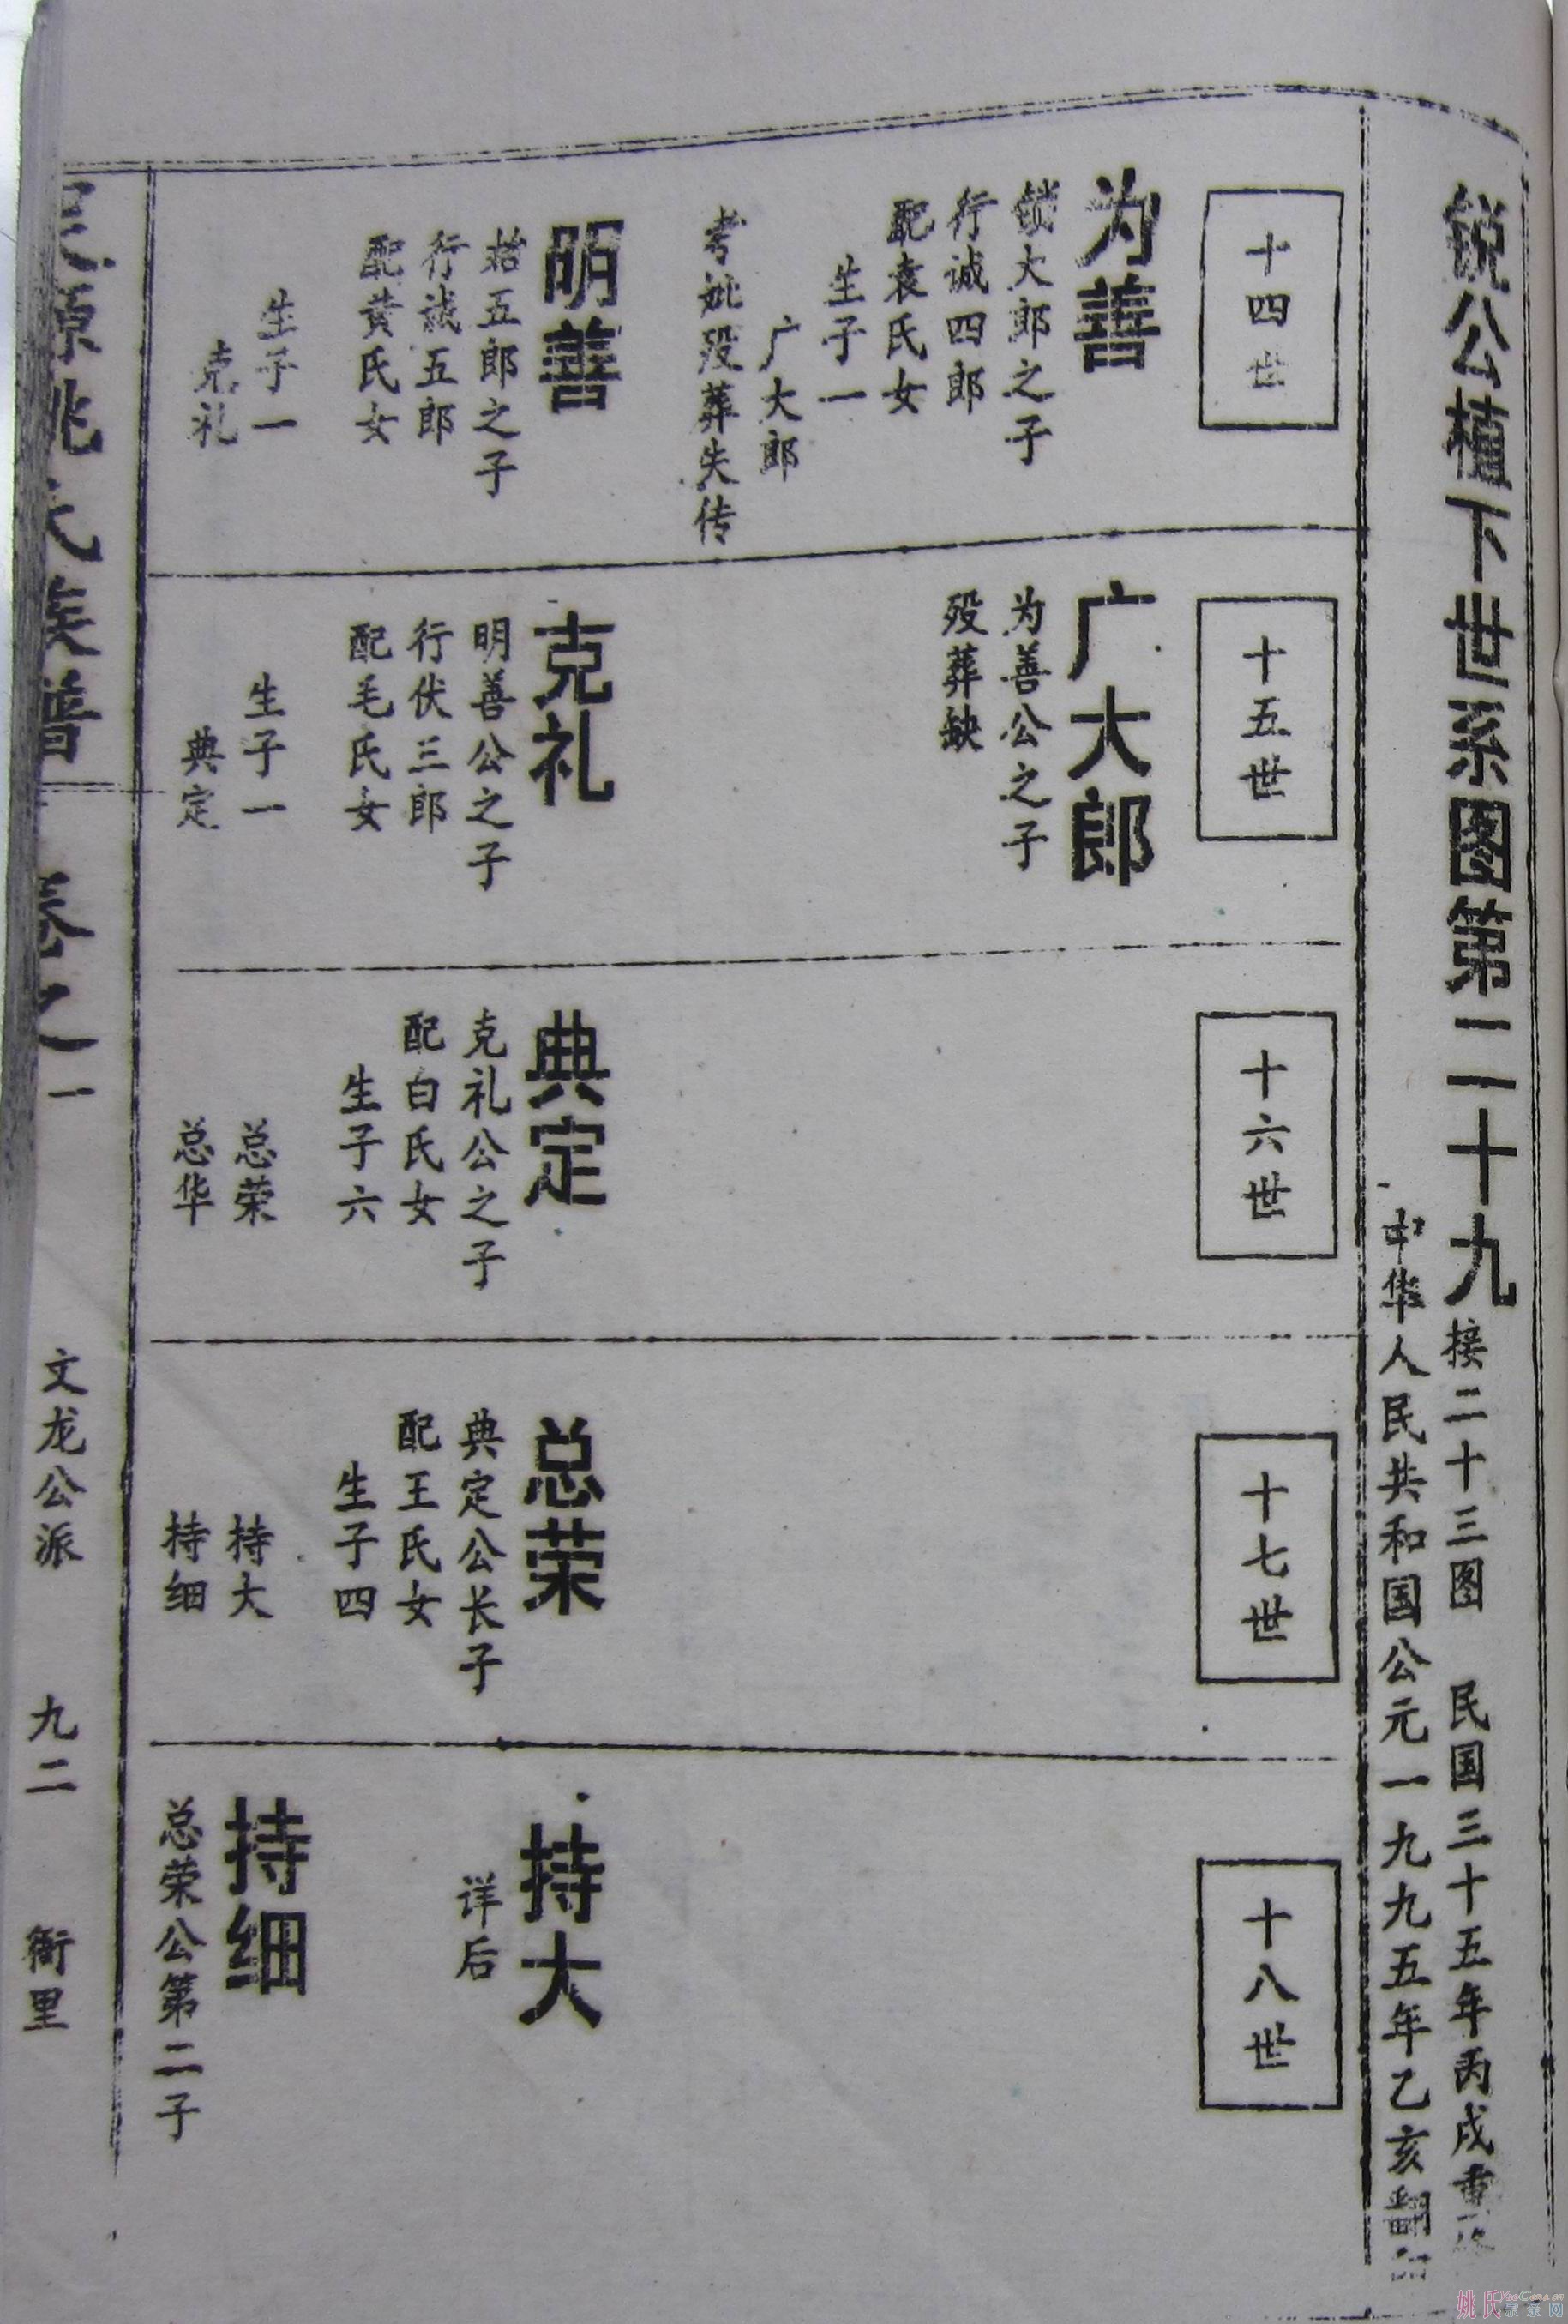 锐公植下世系图第二十九
接二十三图 民国三十五年丙戌重修
中华人民共和国公元一九九五年乙亥翻
十四世
为善
锁大郎之子
行诚四郎
配袁氏女
生子一
广大郎
考妣殁葬失传
明善
拾五郎之子
行诚五郎
配黄氏女
生子一
克礼
十五世
广大郎
为善公之子
殁葬缺
克礼
明善公之子
行伏三郎
配毛氏女
生子一
典定
十六世
典定
克礼公之子
配白氏女
生子六
总荣
总华
十七世
总荣
典定公长子
配王氏女
生子四
持大
持细
十八世
持大
详后
持细
总荣公第二子
源姚氏族谱 卷之一 文龙公派 九二 衙里
姚氏